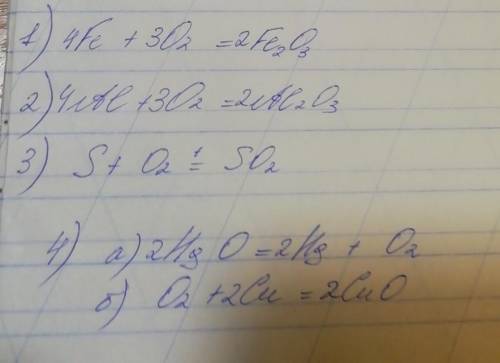 1) 4Fe + 3O₂ = 2Fe₂O₃
2) 4Al + 3O₂ = 2Al₂O₃
3) S + O₂ = SO₂
4) а) 2HgO = 2Hg + O₂
б) O₂ + 2Cu = 2CuO